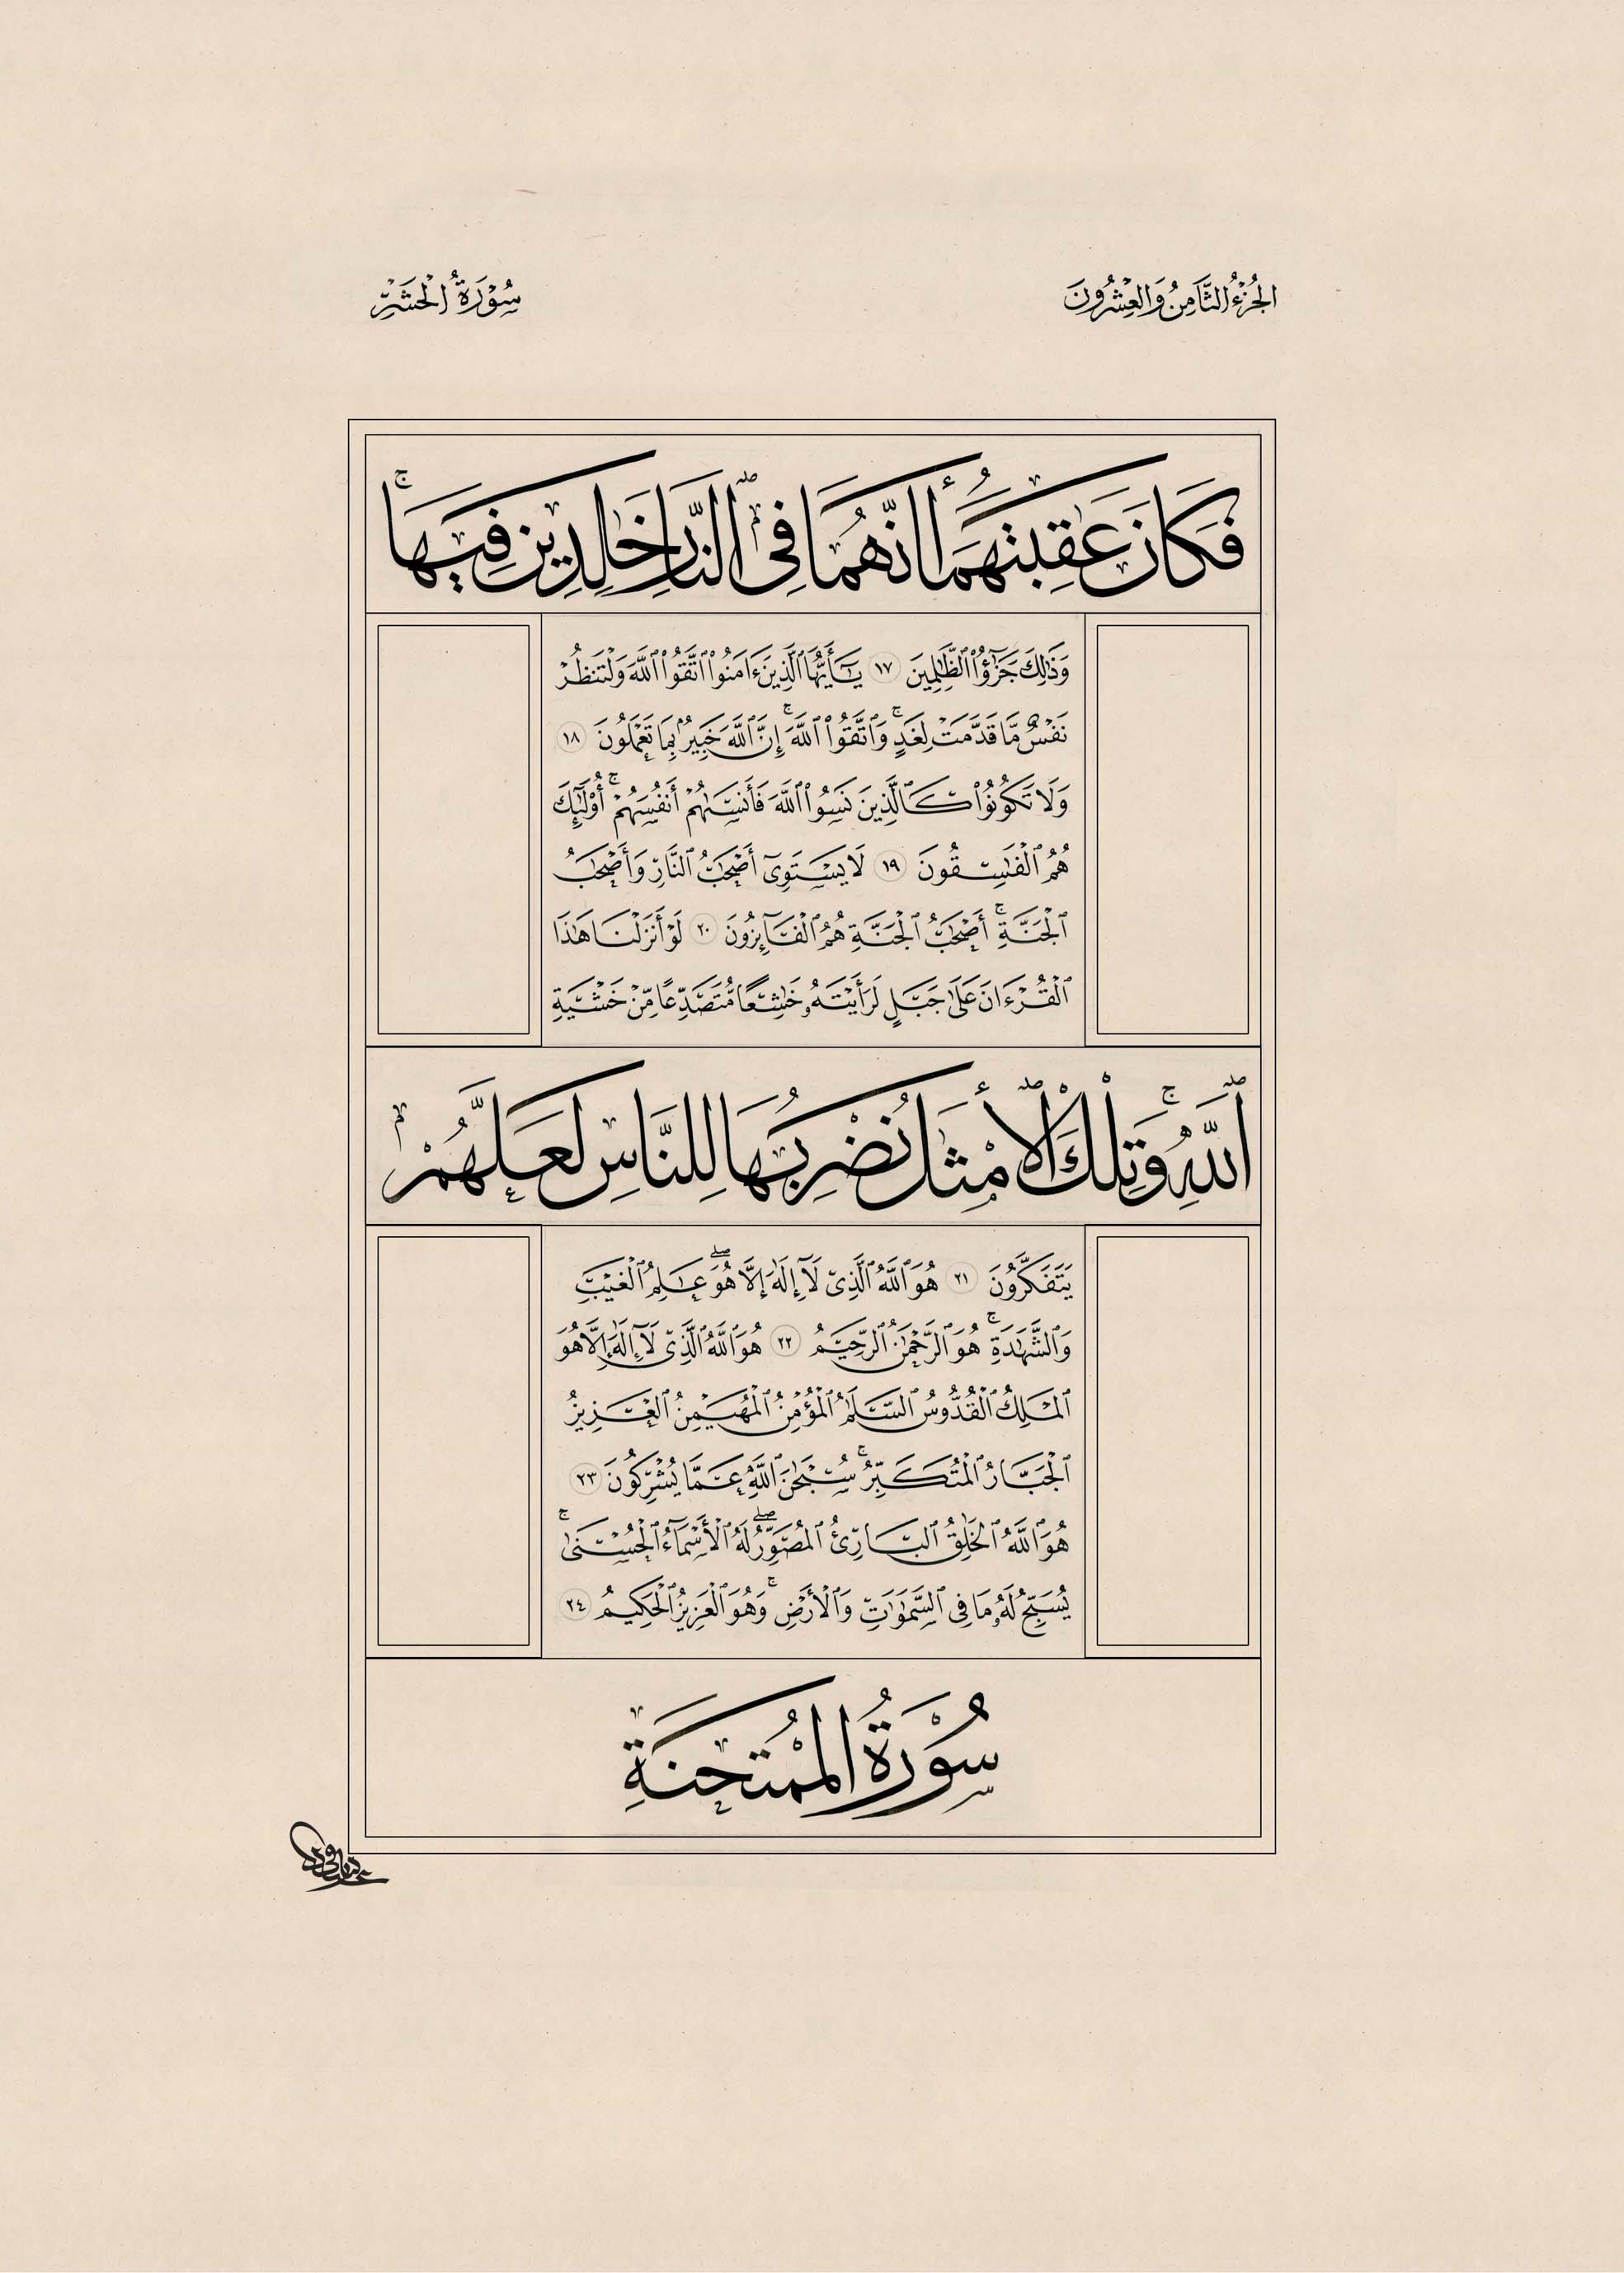 الجُزْءُ الثَّامِنُ وَالعِشْرُونَ
سُوْرَةُ الْحَشْرِ
فَكَانَ عَٰقِبَتَهُمَآ أَنَّهُمَا فِى ٱلنَّارِ خَٰلِدَيْنِ فِيهَا ۚ
وَذَٰلِكَ جَزَٰٓؤُا۟ ٱلظَّٰلِمِينَ ١٧ يَٰٓأَيُّهَا ٱلَّذِينَ ءَامَنُوا۟ ٱتَّقُوا۟ ٱللَّهَ وَلْتَنظُرْ
نَفْسٌ مَّا قَدَّمَتْ لِغَدٍ ۚ وَٱتَّقُوا۟ ٱللَّهَ ۚ إِنَّ ٱللَّهَ خَبِيرٌۢ بِمَا تَعْمَلُونَ ١٨
وَلَا تَكُونُوا۟ كَٱلَّذِينَ نَسُوا۟ ٱللَّهَ فَأَنسَىٰهُمْ أَنفُسَهُمْ ۚ أُو۟لَٰٓئِكَ
هُمُ ٱلْفَٰسِقُونَ ١٩ لَا يَسْتَوِىٓ أَصْحَٰبُ ٱلنَّارِ وَأَصْحَٰبُ
ٱلْجَنَّةِ ۚ أَصْحَٰبُ ٱلْجَنَّةِ هُمُ ٱلْفَآئِزُونَ ٢٠ لَوْ أَنزَلْنَا هَٰذَا
ٱلْقُرْءَانَ عَلَىٰ جَبَلٍ لَّرَأَيْتَهُۥ خَٰشِعًا مُّتَصَدِّعًا مِّنْ خَشْيَةِ
ٱللَّهِ ۚ وَتِلْكَ ٱلْأَمْثَٰلُ نَضْرِبُهَا لِلنَّاسِ لَعَلَّهُمْ
يَتَفَكَّرُونَ ٢١ هُوَ ٱللَّهُ ٱلَّذِى لَآ إِلَٰهَ إِلَّا هُوَ ۖ عَٰلِمُ ٱلْغَيْبِ
وَٱلشَّهَٰدَةِ ۚ هُوَ ٱلرَّحْمَٰنُ ٱلرَّحِيمُ ٢٢ هُوَ ٱللَّهُ ٱلَّذِى لَآ إِلَٰهَ إِلَّا هُوَ
ٱلْمَلِكُ ٱلْقُدُّوسُ ٱلسَّلَٰمُ ٱلْمُؤْمِنُ ٱلْمُهَيْمِنُ ٱلْعَزِيزُ
ٱلْجَبَّارُ ٱلْمُتَكَبِّرُ ۚ سُبْحَٰنَ ٱللَّهِ عَمَّا يُشْرِكُونَ ٢٣
هُوَ ٱللَّهُ ٱلْخَٰلِقُ ٱلْبَارِئُ ٱلْمُصَوِّرُ ۖ لَهُ ٱلْأَسْمَآءُ ٱلْحُسْنَىٰ ۚ
يُسَبِّحُ لَهُۥ مَا فِى ٱلسَّمَٰوَٰتِ وَٱلْأَرْضِ ۚ وَهُوَ ٱلْعَزِيزُ ٱلْحَكِيمُ ٢٤
سُوْرَةُ المُمْتَحَنَةِ